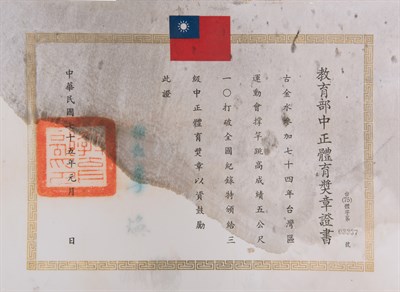 教育部中正體育獎章證書
號
古金水參加七十四年台灣區
運動會撐竿跳高成績五公尺
一〇打破全國紀錄特頒給三
級中正體育獎章以資鼓勵
此證
中華民國七十五年元月 日